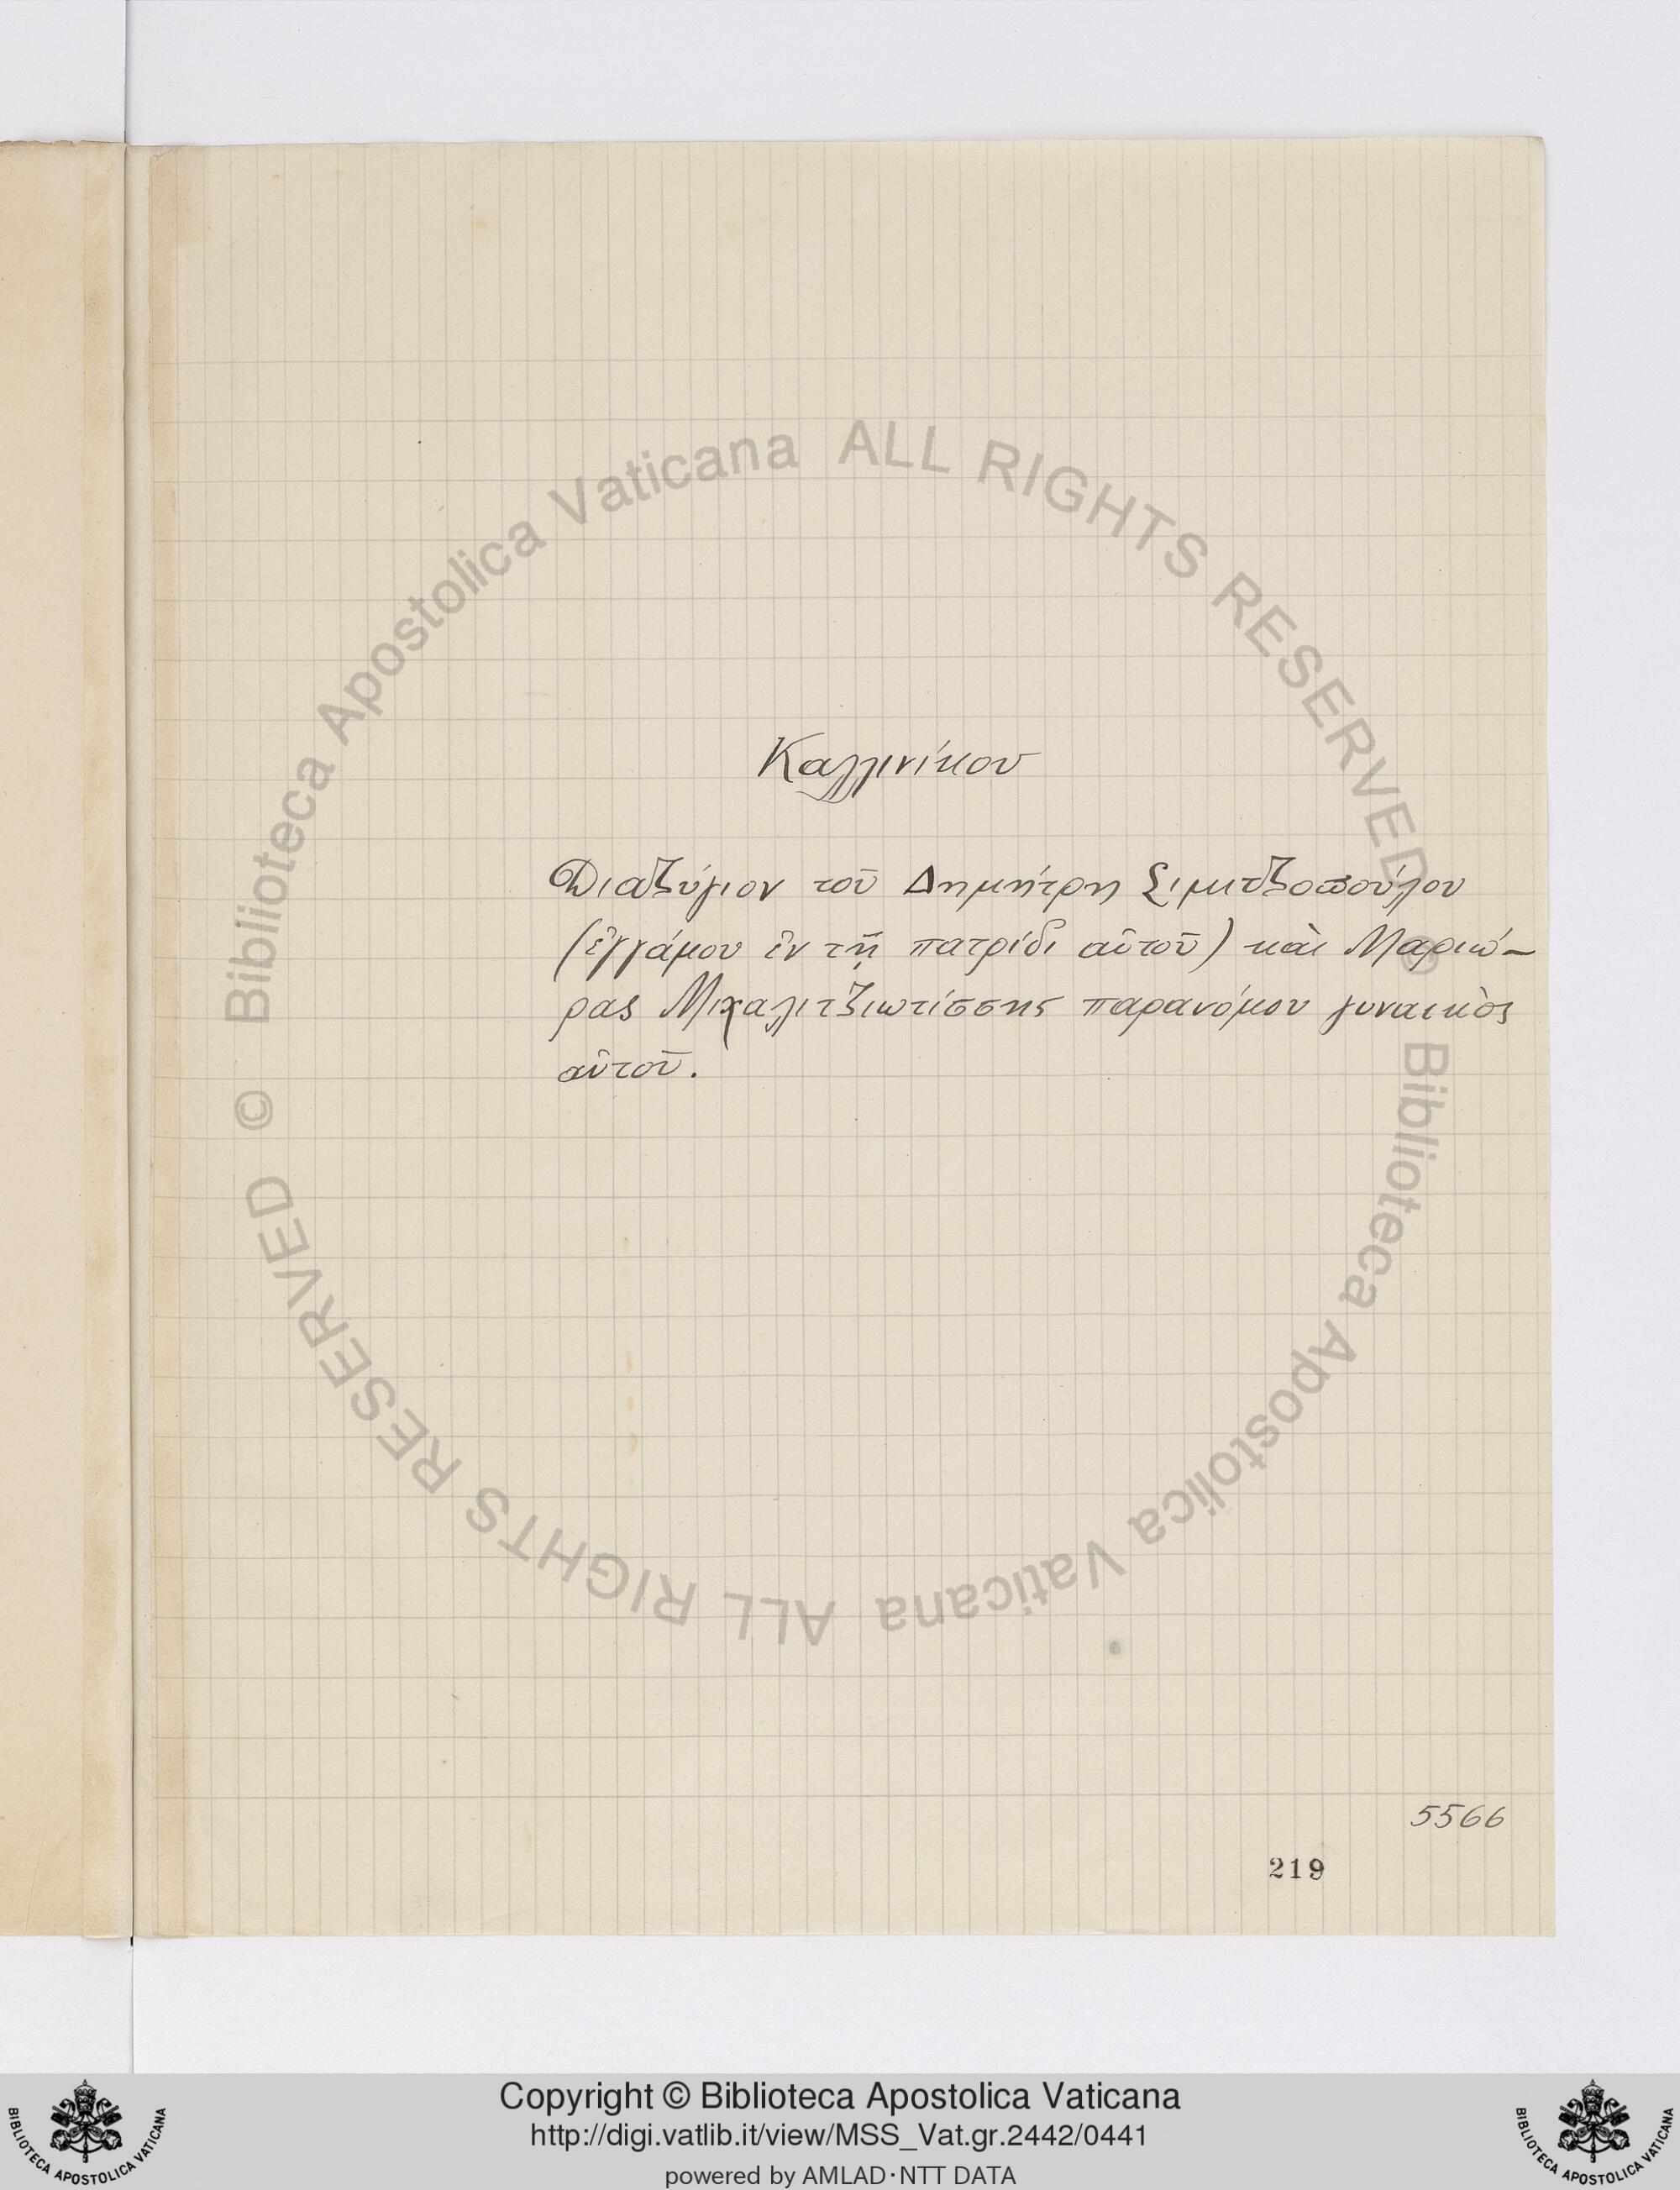 Καλλινίκου
Διαζύγιον τοῦ Δημήτρη Σιμιτζοπούλου
(ἐγγάμου ἐν τῇ πατρίδι αὐτοῦ) καὶ Μαριώ-
ρας Μιχαλιτζιωτίσσης παρανόμου γυναικὸς
αὐτοῦ.
5566
219
© Biblioteca Apostolica Vaticana ALL RIGHTS RESERVED
© Biblioteca Apostolica Vaticana ALL RIGHTS RESERVED
Copyright © Biblioteca Apostolica Vaticana
http://digi.vatlib.it/view/MSS_Vat.gr.2442/0441
powered by AMLAD·NTT DATA
BIBLIOTECA APOSTOLICA VATICANA
BIBLIOTECA APOSTOLICA VATICANA